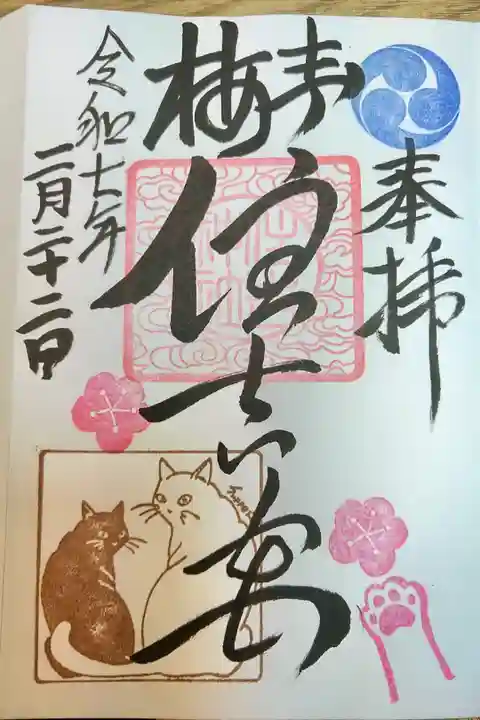 奉拝
青梅
住吉
令和七年
二月二十二日